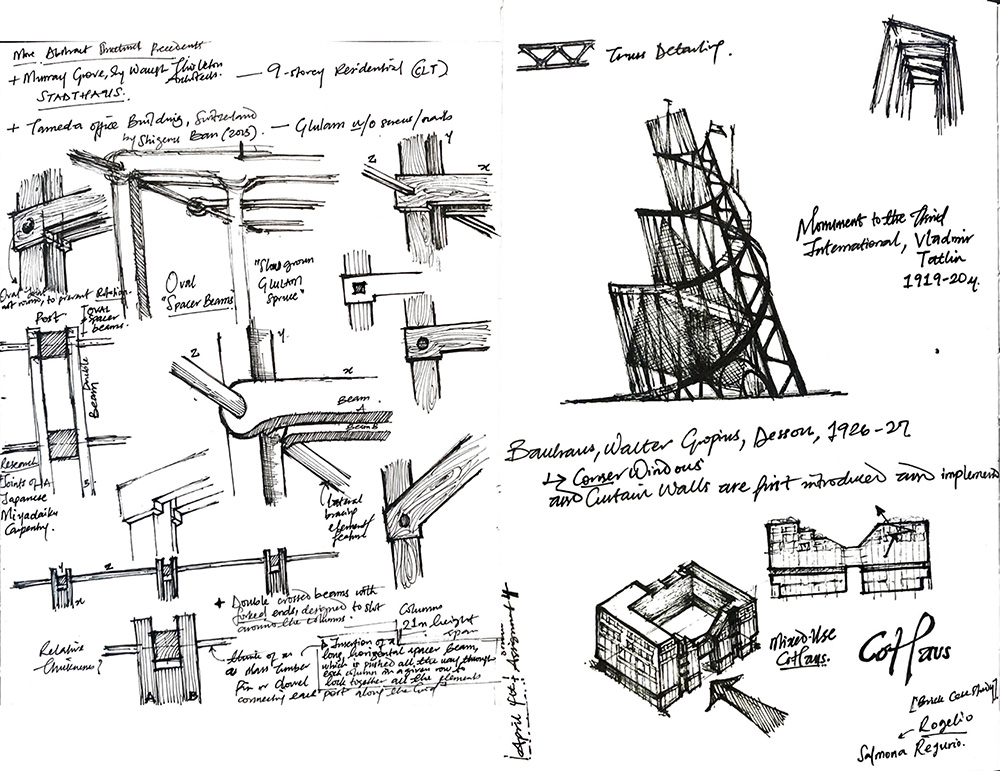 More Abstract Structural Precedents
+ Murray Grove, by Waugh Thistleton
Architects. — 9-storey Residential (CLT)
STADTHAUS.
+ Tamedia office Building, Switzerland
by Shigeru Ban (2013). — Glulam w/o screws/nails
z
y
x
Oval
"Spacer Beams"
"Slow grown
Glulam
Spruce"
not round, to prevent Rotation.
Post
OVAL
spacer
beams.
Double
Beam
y
z
x
Beam
A
Beam B
Research
Joints of
Japanese
Miyadaiku
Carpentry.
A
B
lateral
bracing
element/
feature
y
z
x
+ Double crosser beams with
forked ends, designed to slot
around the columns.
Columns
21m height
span
Relative
Thickness?
A
B
think of as
a mass timber
Pin or dowel
connecting each post along the Grid
→ Insertion of a
long horizontal spacer beam,
which is pushed all the way through
each column in a given row to
lock together all the elements
Truss Detailing.
Monument to the Third
International, Vladmir
Tatlin
1919-20
Bauhaus, Walter Gropius, Dessau, 1926-27
↳ Corner Windows
and Curtain Walls are first introduced and implemen
Mixed-Use
CotHaus.
CotHaus
[Brick Case Study]
Rogelio
Salmona
April 4th: Assignment